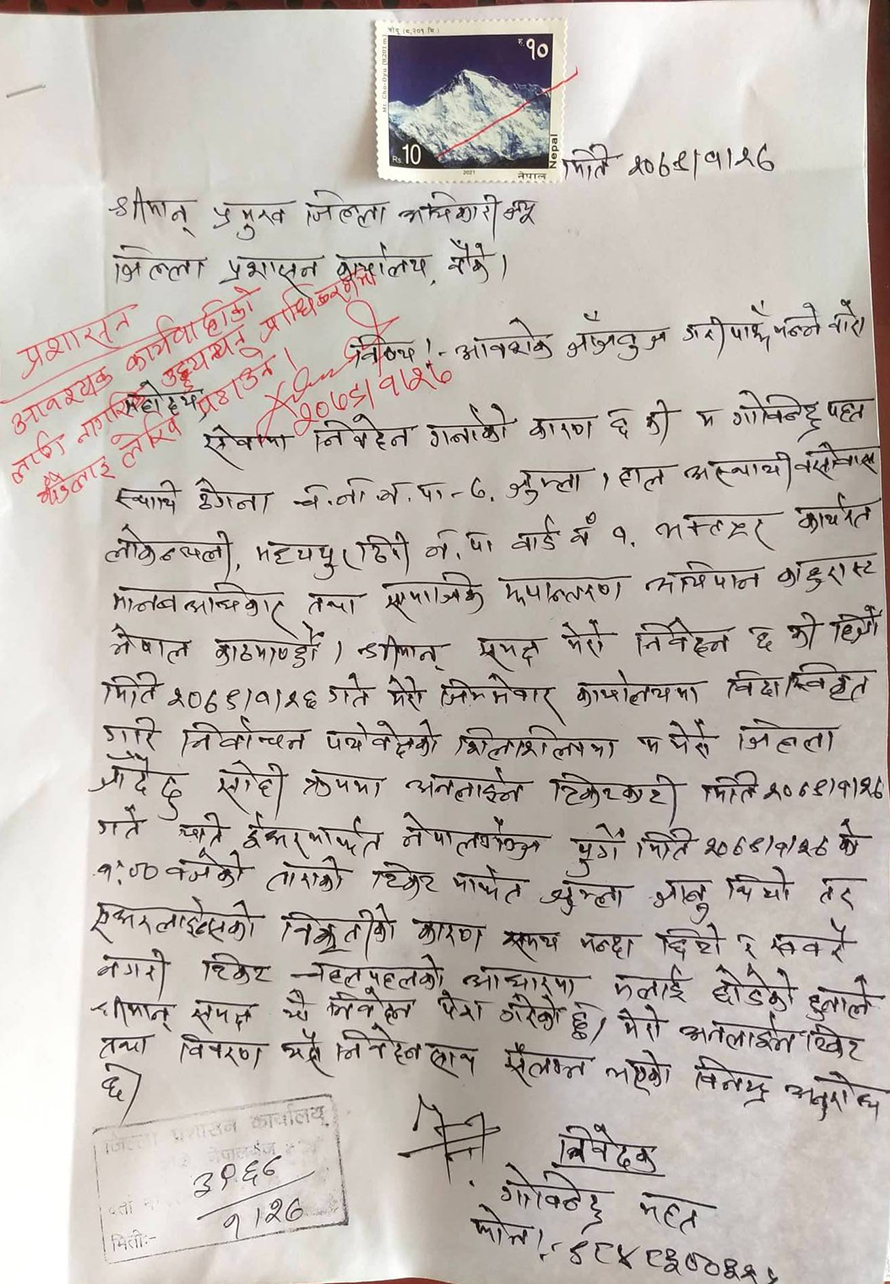 चोयु (८,२०१ मि.)
रु. १०
Mt. Cho-Oyu (8,201 m)
Rs. 10
2021
नेपाल
Nepal
मिति २०७९/१/२७
श्रीमान् प्रमुख जिल्ला अधिकारी ज्यू
जिल्ला प्रशासन कार्यालय, बाँके।
प्रशासन
आवश्यक कार्यवाहीको
लागि नागरिक उड्डयन प्राधिकरणमा
लेखि पठाउने।
२०७९/१/२७
विषय:- आवश्यक गरी पाऊँ भन्ने बारे।
महोदय
सेवामा निवेदन गर्नाको कारण छ की म गोविन्द्र महत
स्थायी ठेगाना च.ना.न.पा-७. जुम्ला। हाल अस्थायी बसोबास
लोकन्थली, मध्यपुर ठिमी न.पा वार्ड नं १. कार्यरत
मानव अधिकार तथा समाजिक रूपान्तरण अभियान
नेपाल काठमाण्डौं। श्रीमान् समक्ष मेरो निवेदन छ की हिजो
मिति २०७९/१/२६ गते मेरो जिम्मेवार कार्यालयमा विदा स्विकृत
गारि निर्वाचन पर्यवेक्षको शिलशिलामा म मेरो जिल्ला
जाँदै छु सोही क्रममा अनलाईन टिकटकाटी मिति २०७९/१/२६
गते मार्फत नेपालगंन्ज पुगें मिति २०७९/१/२७ को
१:०० वजेको ताराको टिकट मार्फत जुम्ला जानु थियो तर
एअरलाईन्सको विकृतीको कारण समय भन्दा ढिलो र खबरै
नगरी टिकट चहलपहलको आधारमा मलाई छोडेको हुनाले
श्रीमान् समक्ष यो निवेदन पेश गरेको छु। मेरो अनलाईन टिकट
तथा विवरण यसै निवेदन साथ संलग्न भएको विनम्र अनुरोध
छ।
जिल्ला प्रशासन कार्यालय
नेपालगंज
दर्ता
मिति:-
१।२७
निवेदक
गोविन्द्र महत
फोन:-